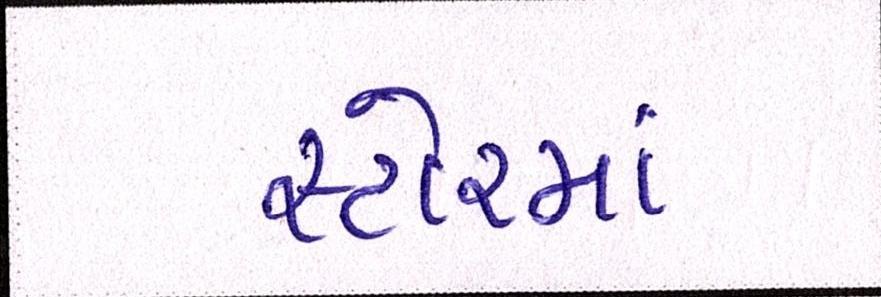 સ્ટોરમાં